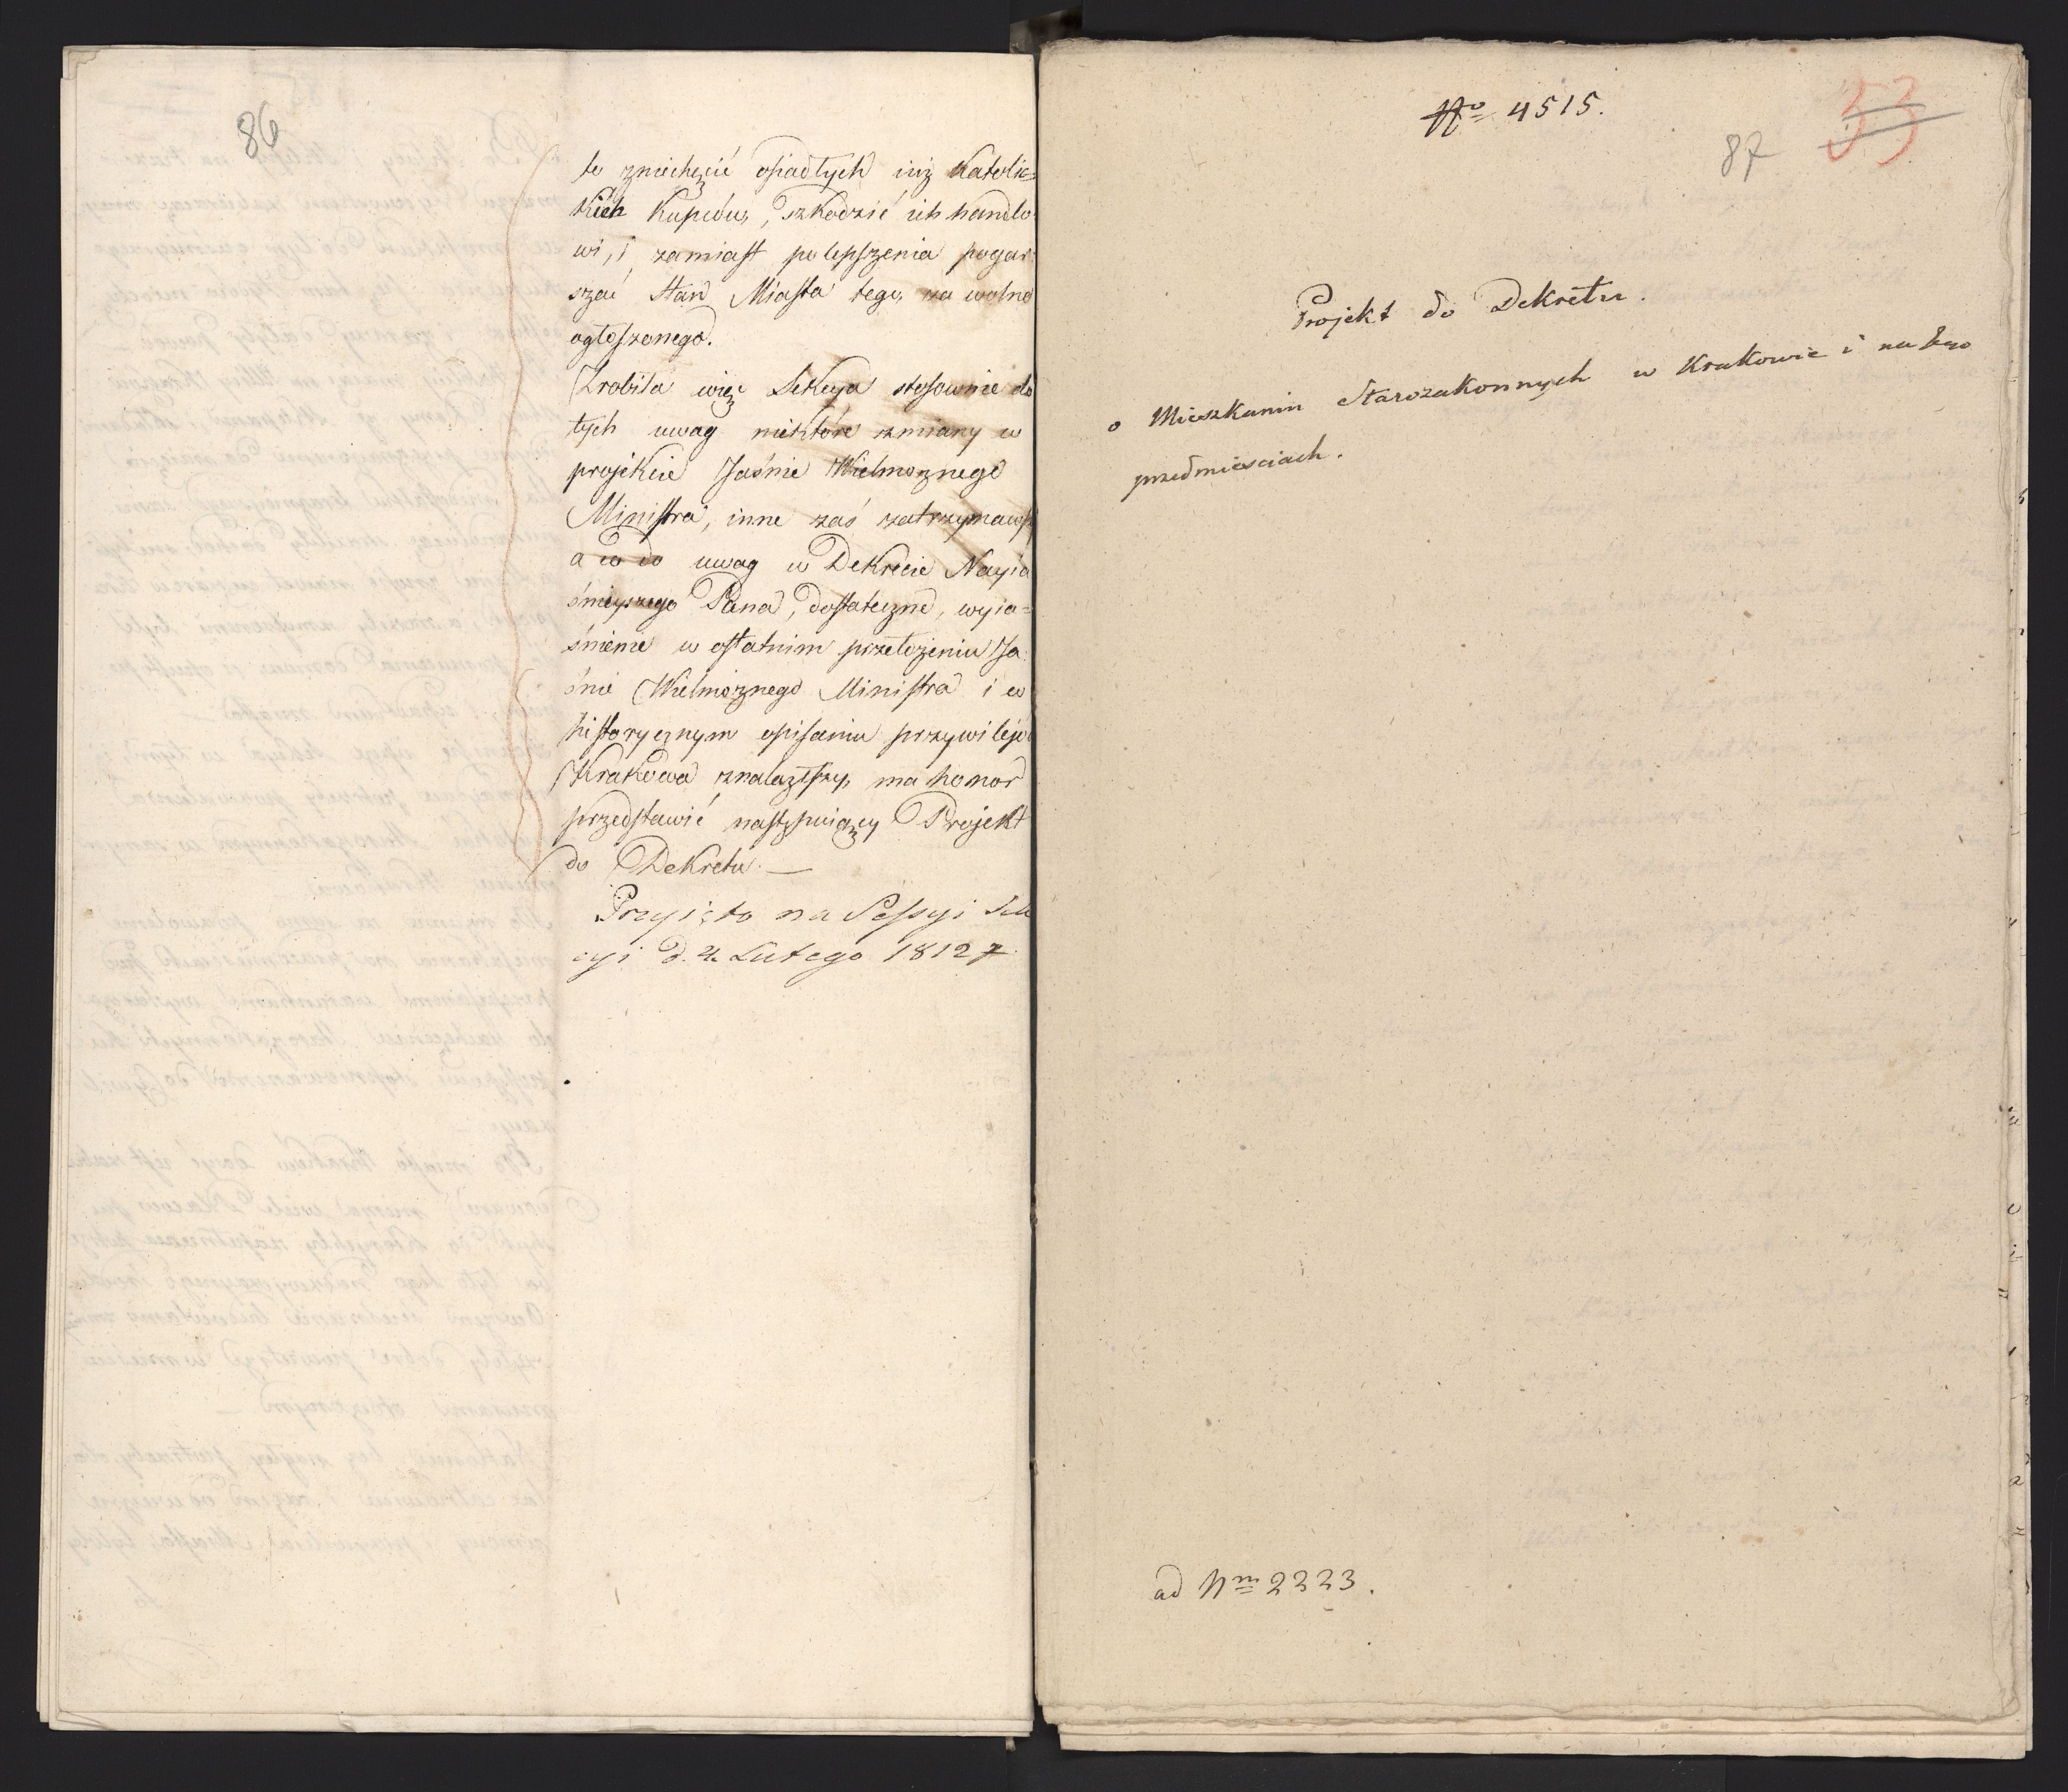 86
to zniechęcić osiadłych iuż Katolic=
kich Kupców, szkodzić ich handlo
wi, i zamiast polepszenia pogar
szać stan Miasta tego, za wolne
ogłoszonego.
Zrobiła więc Sekcya stosownie do
tych uwag niektóre zmiany w
projekcie Jaśnie Wielmożnego
Ministra, inne zaś zatrzymawsz
a co do uwag w Dekrecie Nayia
śnieyszego Pana, dostateczne, wyia=
śnienie w ostatnim przełożeniu Ja
śnie Wielmożnego Ministra i w
historycznym opisaniu przywilejó
Krakowa znalazłszy, ma honor
przedstawić następuiący Projekt
do Dekretu. —
Przyięto na Sessyi Sek
cyi d. 4 Lutego 1812 r.
No 4515.
87 53
Projekt do Dekretu.
o Mieszkaniu Starozakonnych w Krakowie i na Jego
przedmiesciach.
ad Nm 2323.